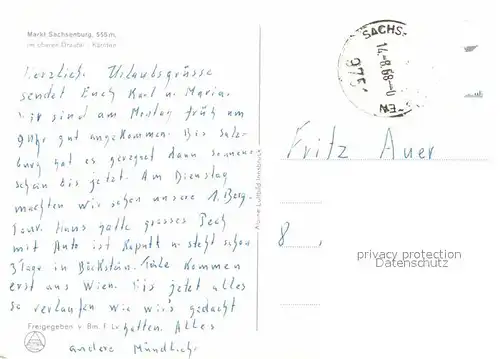 Markt Sachsenburg, 555 m,
im oberen Drautal - Kärnten
Herzliche Urlaubsgrüsse
sendet Euch Karl u. Maria.
Wir sind am Montag früh um
9 Uhr gut angekommen. Bis Salz-
burg hat es geregnet dann sonnen-
schein bis jetzt. Am Dienstag
machten wir schon unsere 1. Berg-
tour. Hans hatte grosses Pech
mit Auto ist kaputt u. steht schon
3 Tage in Böckstein. Kommen
erst aus Wien. Bis jetzt alles
so verlaufen wie wir's gedacht
hatten. Alles
andere Mündlich.
Freigegeben v. Bm. f. Lv
Alpine Luftbild Innsbruck
SACHS
14.-8.68-
9751
Fritz Auer
8
privacy protection
Datenschutz